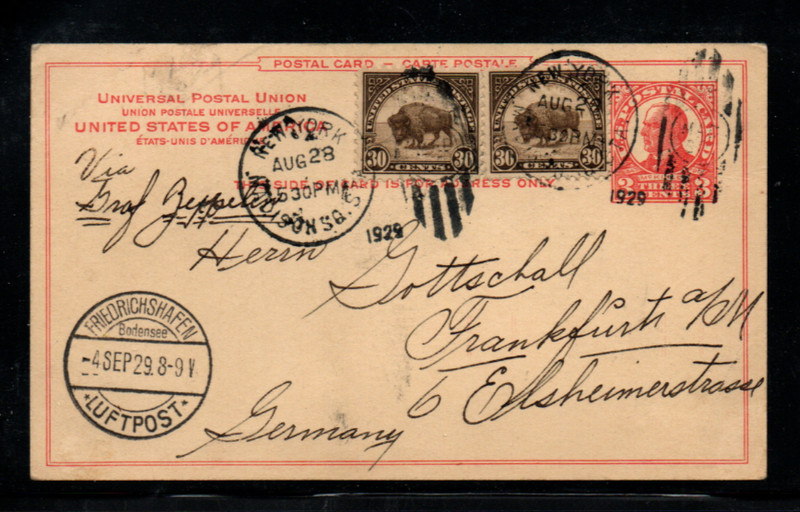 POSTAL CARD – CARTE POSTALE
UNIVERSAL POSTAL UNION
UNION POSTALE UNIVERSELLE
UNITED STATES OF AMERICA
ÉTATS-UNIS D'AMÉRIQUE
THE SIDE OF CARD IS FOR ADDRESS ONLY
Via
Graf Zeppelin
NEW YORK
AUG 28
5 30 PM
1929
UNITED STATES POSTAGE
30 CENTS 30
30 CENTS 30
NEW YORK
AUG 2
1929
U.S. POSTAL CARD
3 THREE CENTS 3
Herrn
Gottschall
Frankfurt a/M
6 Elsheimerstrasse
Germany
FRIEDRICHSHAFEN
Bodensee
-4 SEP 29. 8-9 V
LUFTPOST